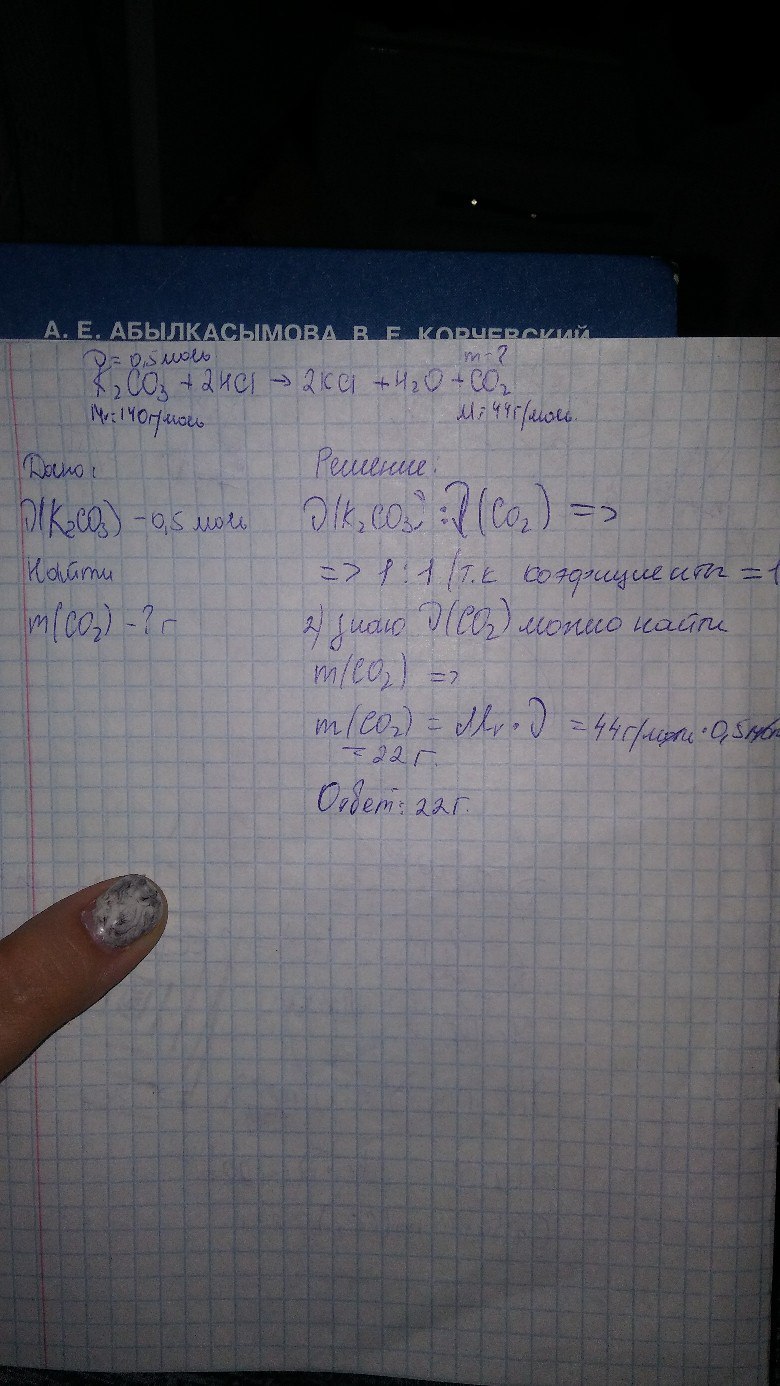 А. Е. АБЫЛКАСЫМОВА, В. Е. КОРЧЕВСКИЙ
ν = 0,5 моль
m - ?
K₂CO₃ + 2HCl → 2KCl + H₂O + CO₂
Mr = 140 г/моль
M = 44 г/моль
Дано:
ν(K₂CO₃) - 0,5 моль
Найти
m(CO₂) - ? г
Решение:
ν(K₂CO₃) : ν(CO₂) =>
=> 1 : 1 (т.к коэфициенты = 1
2) зная ν(CO₂) можно найти
m(CO₂) =>
m(CO₂) = Mr · ν = 44 г/моль · 0,5 моль
= 22 г.
Ответ: 22 г.